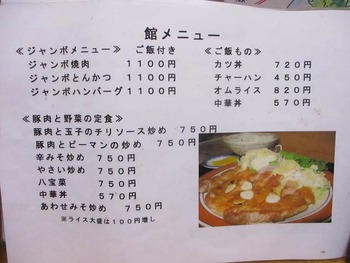 館メニュー
≪ジャンボメニュー≫ ご飯付き
ジャンボ焼肉 1100円
ジャンボとんかつ 1100円
ジャンボハンバーグ 1100円
≪ご飯もの≫
カツ丼 720円
チャーハン 450円
オムライス 820円
中華丼 570円
≪豚肉と野菜の定食≫
豚肉と玉子のチリソース炒め 750円
豚肉とピーマンの炒め 750円
辛みそ炒め 750円
やさい炒め 750円
八宝菜 750円
中華丼 570円
あわせみそ炒め 750円
※ライス大盛は100円増し